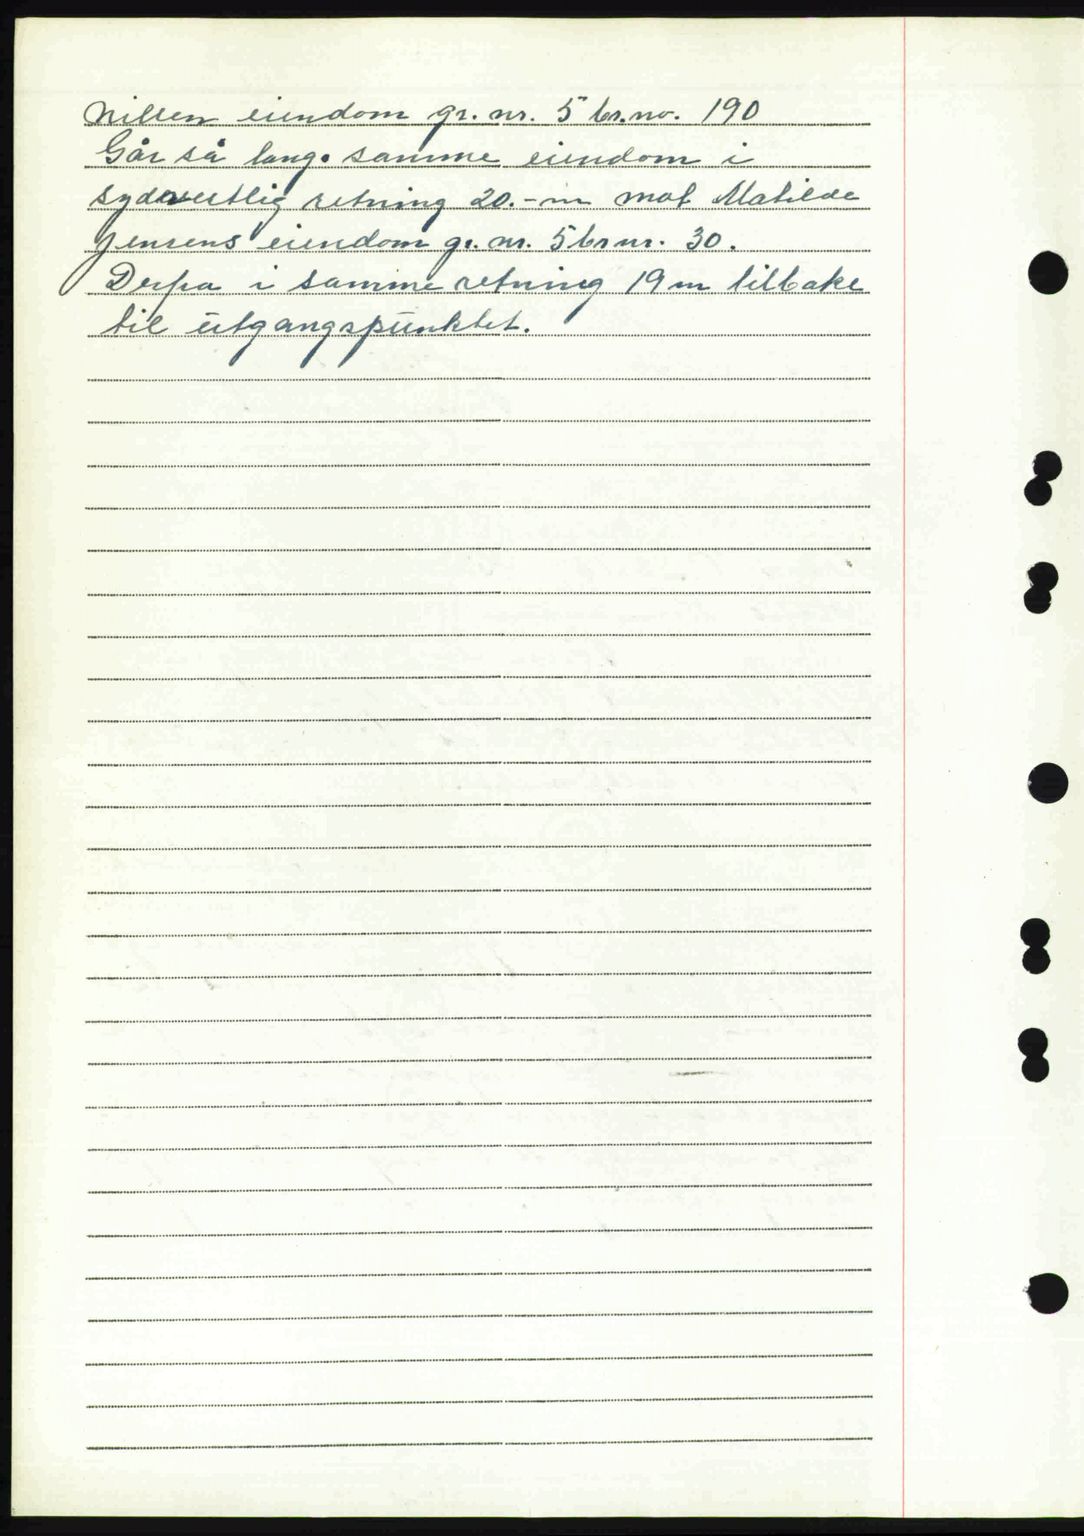 Nilsen eiendom gr. nr. 5 br. no. 190
Går så lang. samme eiendom i
sydvestlig retning 20.-m mot Matilde
Jensens eiendom gr. nr. 5 br nr. 30.
Derfra i samme retning 19 m tilbake
til utgangspunktet.